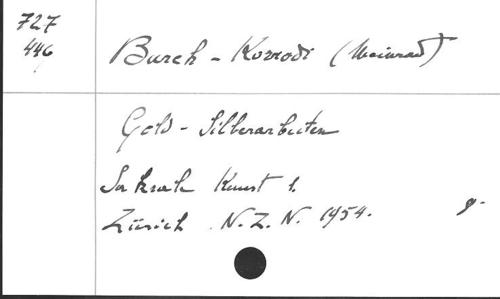 727
446
Burch - Korrodi (Meinrad)
Gold - Silberarbeiten
Sakrale Kunst 1.
Zürich N.Z.N. 1954. 8.